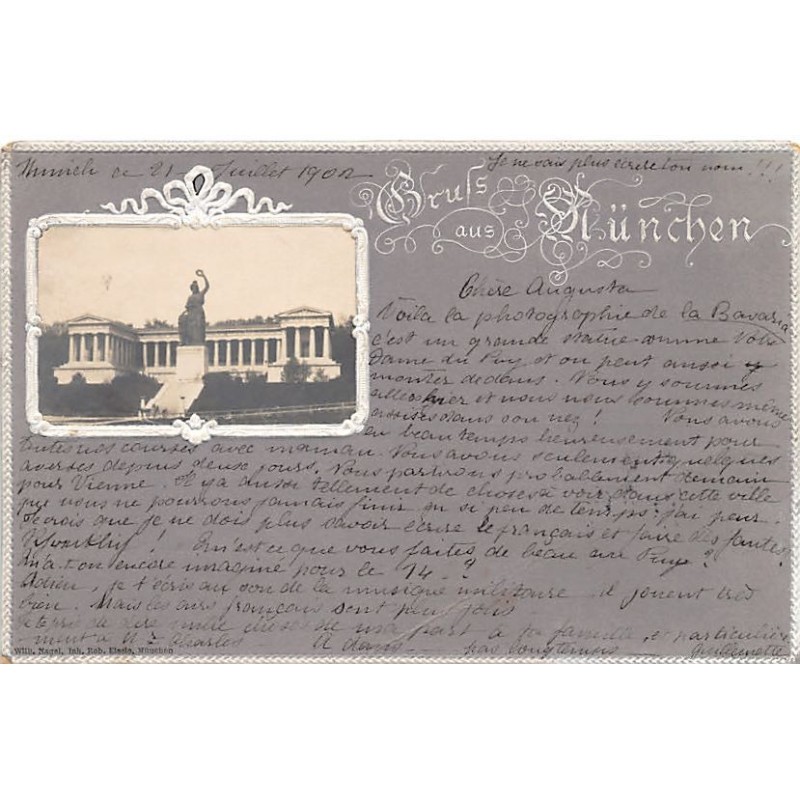 Munich ce 21 Juillet 1902
Je ne sais plus écrire ton nom!!!
Gruss
aus München
Chère Augusta
Voila la photographie de la Bavaria
c'est un grande statue comme Notre
Dame du Puy et on peut aussi y
monter dedans. Nous y sommes
allées hier et nous nous sommes même
assises dans son nez! Nous avons
eu beau temps heureusement pour
toutes nos courses avec maman. Nous avons seulement quelques
averses depuis deux jours. Nous partirons probablement demain
pour Vienne. Il y a aussi tellement de choses à voir dans cette ville
que nous ne pourrons jamais finir en si peu de temps: j'ai peur.
Je crois que je ne dois plus savoir écrire le français et faire des fautes
! Qu'est ce que vous faites de beau au Puy?
Qu'a-t-on encore imaginé pour le 14-?
Adieu, je t'écris au son de la musique militaire il jouent très
bien. Mais les airs français sont plus jolis
Je te prie de dire mille choses de ma part à ta famille, et particulière
ment à Charles A dans pas longtemps Guillemette
Wilh. Nagel, Inh. Rob. München